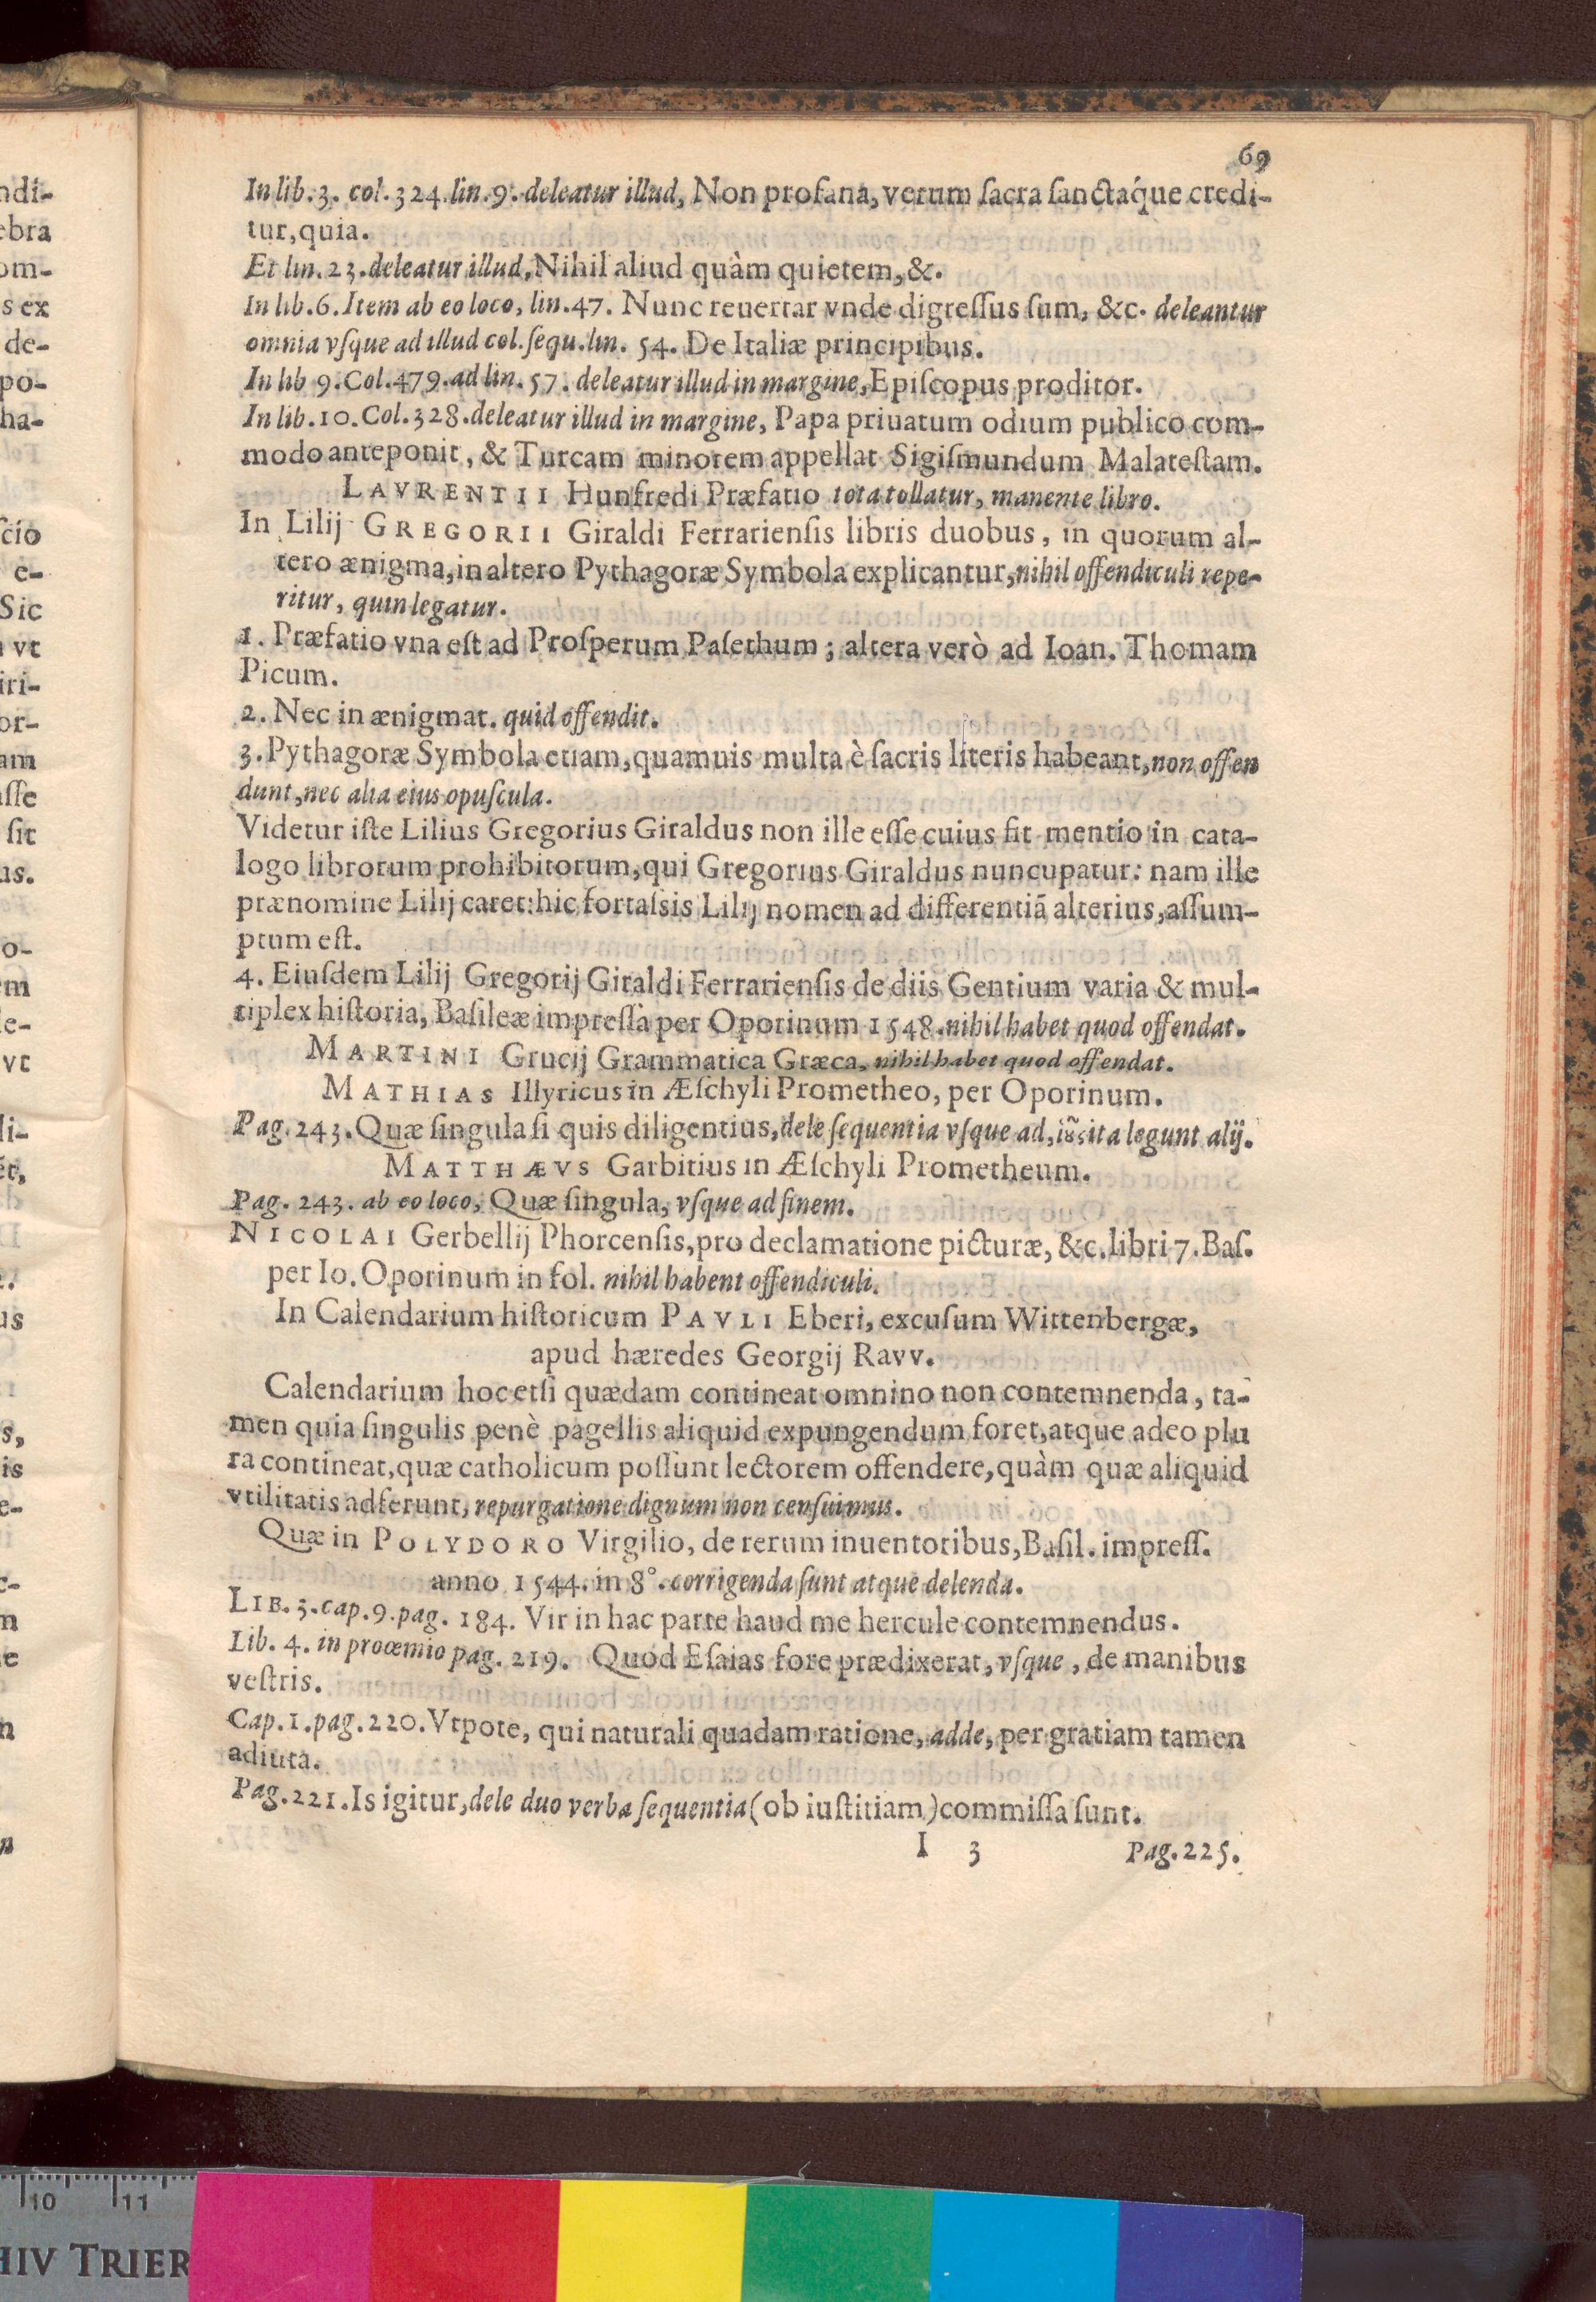 69
In lib. 3. col. 324. lin. 9. deleatur illud, Non profana, verum ſacra ſanctáque credi-
tur, quia.
Et lin. 23. deleatur illud, Nihil aliud quàm quietem, &.
In lib. 6. Item ab eo loco, lin. 47. Nunc reuertar vnde digreſſus ſum, &c. deleantur
omnia vſque ad illud col. ſequ. lin. 54. De Italiæ principibus.
In lib 9. Col. 479. ad lin. 57. deleatur illud in margine, Epiſcopus proditor.
In lib. 10. Col. 328. deleatur illud in margine, Papa priuatum odium publico com-
modo anteponit, & Turcam minorem appellat Sigiſmundum Malateſtam.
LAVRENTII Hunfredi Præfatio tota tollatur, manente libro.
In Lilij GREGORII Giraldi Ferrarienſis libris duobus, in quorum al-
tero ænigma, in altero Pythagoræ Symbola explicantur, nihil offendiculi repe-
ritur, quin legatur.
1. Præfatio vna eſt ad Proſperum Paſethum; altera verò ad Ioan. Thomam
Picum.
2. Nec in ænigmat. quid offendit.
3. Pythagoræ Symbola etiam, quamuis multa è ſacris literis habeant, non offen
dunt, nec alia eius opuſcula.
Videtur iſte Lilius Gregorius Giraldus non ille eſſe cuius fit mentio in cata-
logo librorum prohibitorum, qui Gregorius Giraldus nuncupatur: nam ille
prænomine Lilij caret: hic fortaſsis Lilij nomen ad differentiã alterius, aſſum-
ptum eſt.
4. Eiuſdem Lilij Gregorij Giraldi Ferrarienſis de diis Gentium varia & mul-
tiplex hiſtoria, Baſileæ impreſſa per Oporinum 1548. nihil habet quod offendat.
MARTINI Crucij Grammatica Græca, nihil habet quod offendat.
MATHIAS Illyricus in Æſchyli Prometheo, per Oporinum.
Pag. 243. Quæ ſingula ſi quis diligentius, dele ſequentia vſque ad, ita legunt alij.
MATTHÆVS Garbitius in Æſchyli Prometheum.
Pag. 243. ab eo loco, Quæ ſingula, vſque ad finem.
NICOLAI Gerbellij Phorcenſis, pro declamatione picturæ, &c. libri 7. Baſ.
per Io. Oporinum in fol. nihil habent offendiculi.
In Calendarium hiſtoricum PAVLI Eberi, excuſum Wittenbergæ,
apud hæredes Georgij Ravv.
Calendarium hoc etſi quædam contineat omnino non contemnenda, ta-
men quia ſingulis penè pagellis aliquid expungendum foret, atque adeo plu
ra contineat, quæ catholicum poſſunt lectorem offendere, quàm quæ aliquid
vtilitatis adferunt, repurgatione dignum non cenſuimus.
Quæ in POLYDORO Virgilio, de rerum inuentoribus, Baſil. impreſſ.
anno 1544. in 8°. corrigenda ſunt atque delenda.
LIB. 3. cap. 9. pag. 184. Vir in hac parte haud me hercule contemnendus.
Lib. 4. in proœmio pag. 219. Quod Eſaias fore prædixerat, vſque, de manibus
veſtris.
Cap. 1. pag. 220. Vtpote, qui naturali quadam ratione, adde, per gratiam tamen
adiuta.
Pag. 221. Is igitur, dele duo verba ſequentia (ob iuſtitiam) commiſſa ſunt.
I 3 Pag. 225.
10 11
HIV TRIER